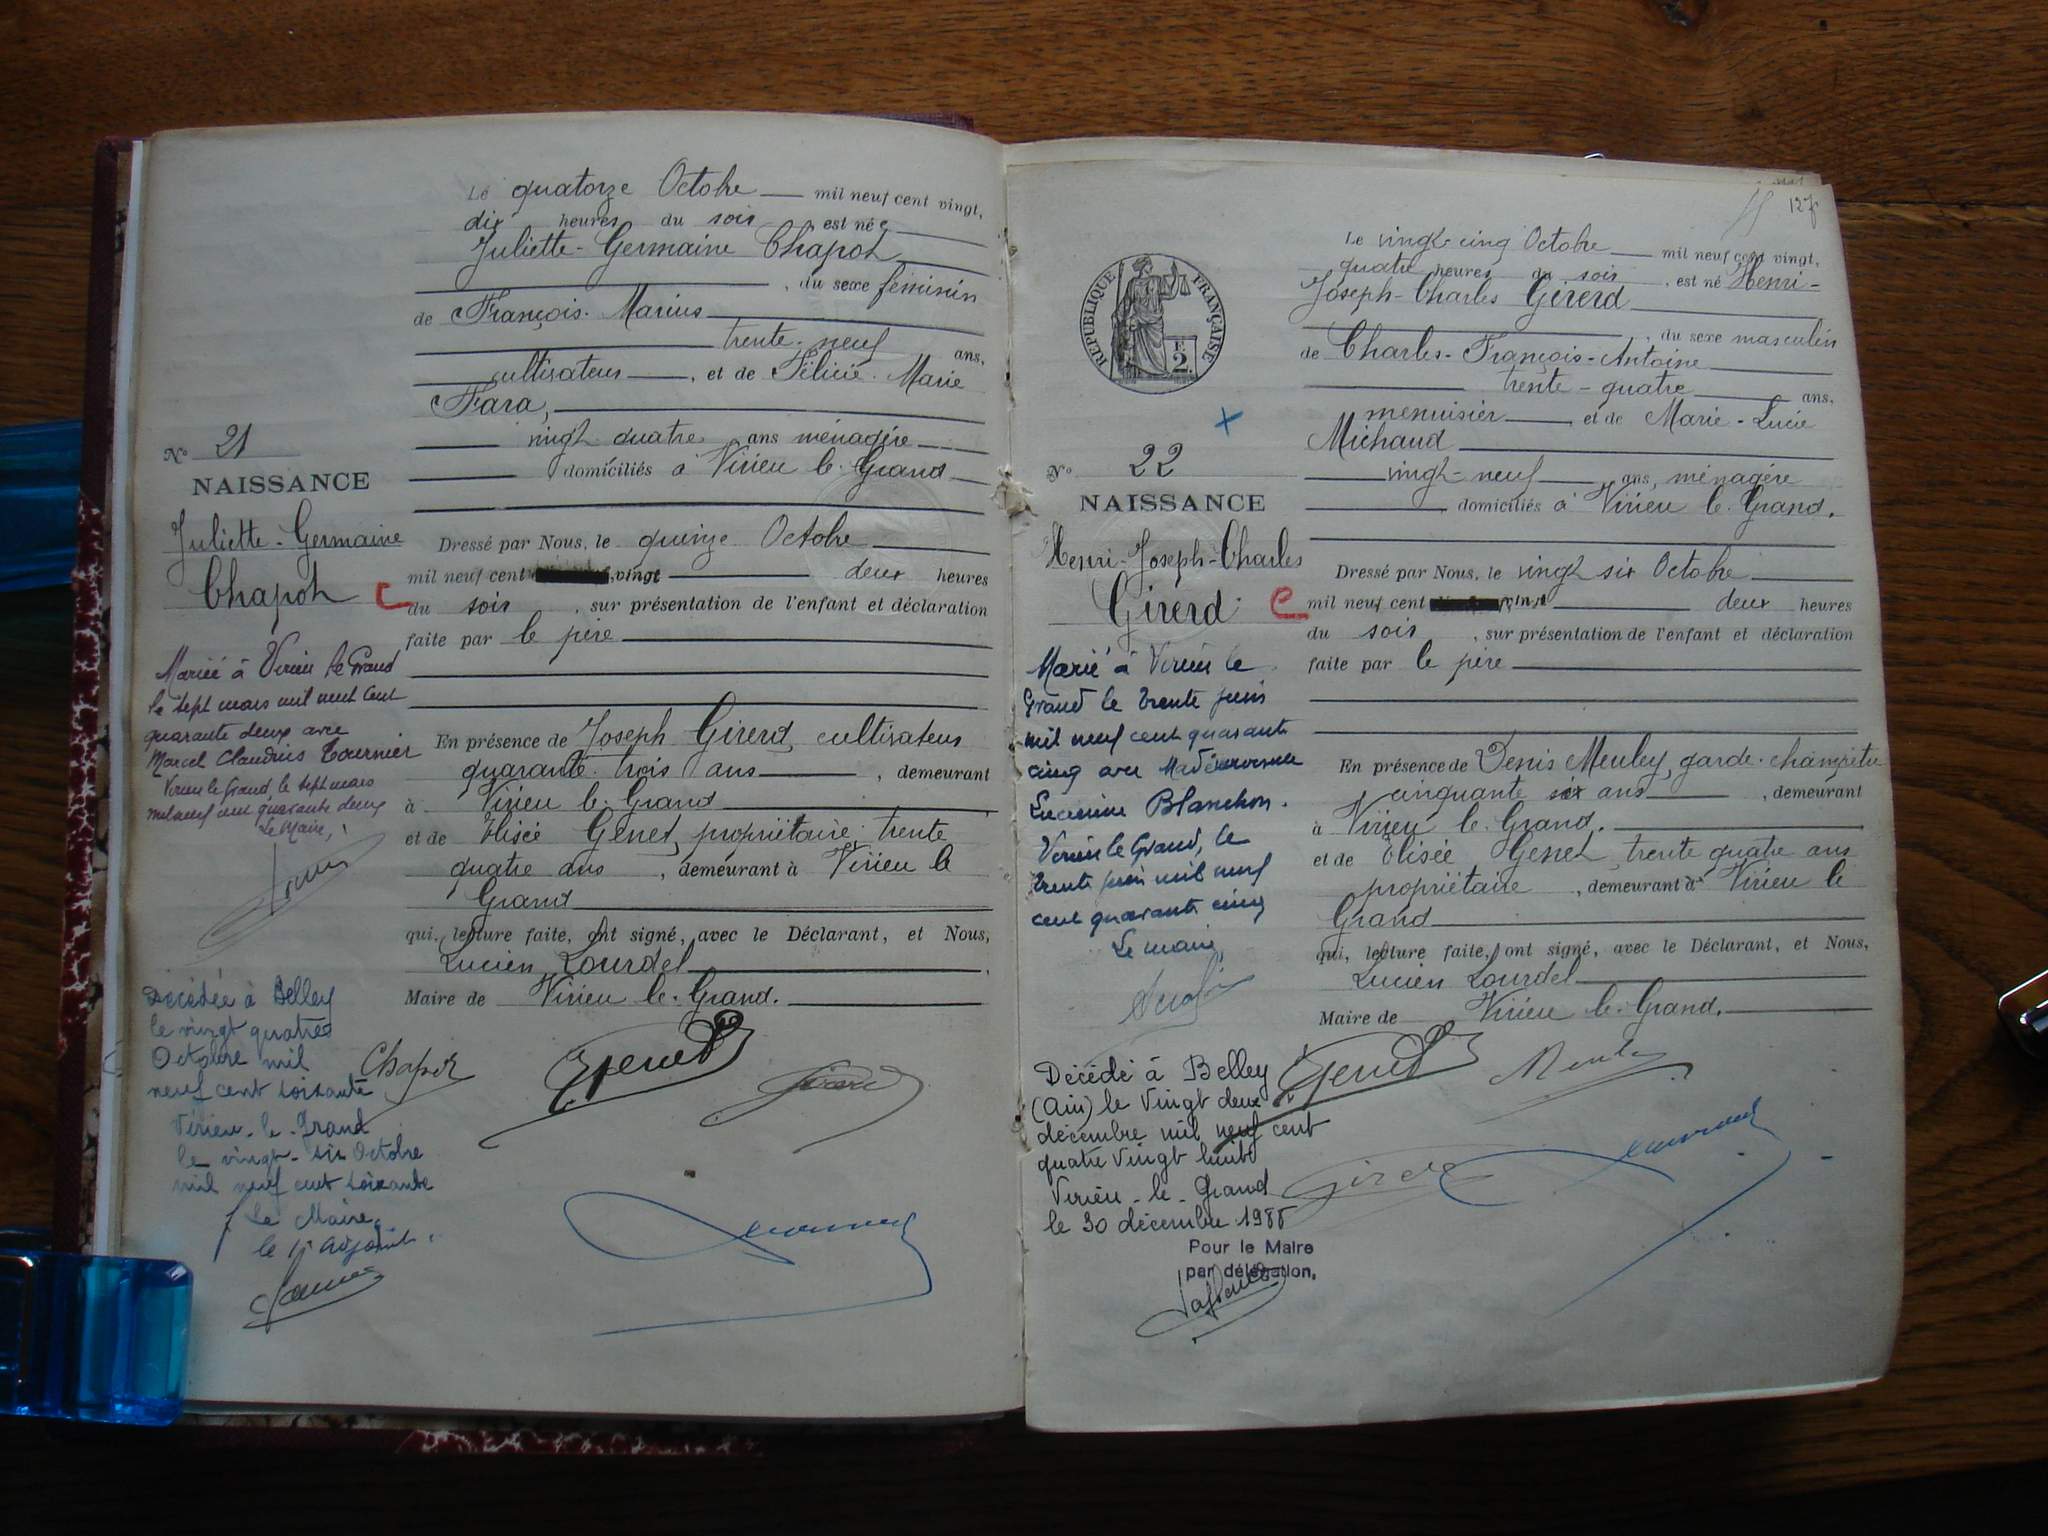 Le quatorze Octobre mil neuf cent vingt,
dix heures du soir est née
Juliette-Germaine Chapot
, du sexe féminin
de François-Marius
trente-neuf ans,
cultivateur, et de Félicie-Marie
Fara,
vingt-quatre ans ménagère
domiciliés à Virieu le-Grand
N° 21
NAISSANCE
Juliette-Germaine
Chapot
Dressé par Nous, le quinze Octobre
mil neuf cent vingt deux heures
du soir, sur présentation de l'enfant et déclaration
faite par le père
Mariée à Virieu le Grand
le sept mars mil neuf cent
quarante deux avec
Marcel Claudius Tournier
Virieu le Grand, le sept mars
mil neuf cent quarante deux
Le Maire,
En présence de Joseph Girerd, cultivateur
quarante-trois ans, demeurant
à Virieu le-Grand
et de Elisée Genet, propriétaire trente
quatre ans, demeurant à Virieu le
Grand
qui, lecture faite, ont signé, avec le Déclarant, et Nous,
Lucien Lourdel,
Maire de Virieu le-Grand.
Décédée à Belley
le vingt quatre
Octobre mil
neuf cent soixante
Virieu-le-Grand
le vingt-six Octobre
mil neuf cent soixante
Le Maire,
le 1r Adjoint.
Chapot
Genet
Girerd
127
Le vingt-cinq Octobre mil neuf cent vingt,
quatre heures du soir, est né Henri-
Joseph-Charles Girerd
, du sexe masculin
de Charles-François-Antoine
trente-quatre ans,
menuisier et de Marie-Lucie
Michaud
vingt-neuf ans, ménagère
domiciliés à Virieu le-Grand.
REPUBLIQUE FRANÇAISE
F.
2.
N° 22
NAISSANCE
Henri-Joseph-Charles
Girerd
Dressé par Nous, le vingt six Octobre
mil neuf cent vingt deux heures
du soir, sur présentation de l'enfant et déclaration
faite par le père
Marié à Virieu le
Grand le trente juin
mil neuf cent quarante
cinq avec
Lucienne Blanchon.
Virieu le Grand, le
trente juin mil neuf
cent quarante cinq
Le maire,
En présence de Denis Meuley, garde-champêtre
cinquante six ans, demeurant
à Virieu le-Grand.
et de Elisée Genet, trente quatre ans
propriétaire, demeurant à Virieu le
Grand
qui, lecture faite, ont signé, avec le Déclarant, et Nous,
Lucien Lourdel
Maire de Virieu le-Grand.
Décédé à Belley
(Ain) le vingt deux
décembre mil neuf cent
quatre vingt huit
Virieu-le-Grand
le 30 décembre 1988
Pour le Maire
par délégation,
Genet
Girerd